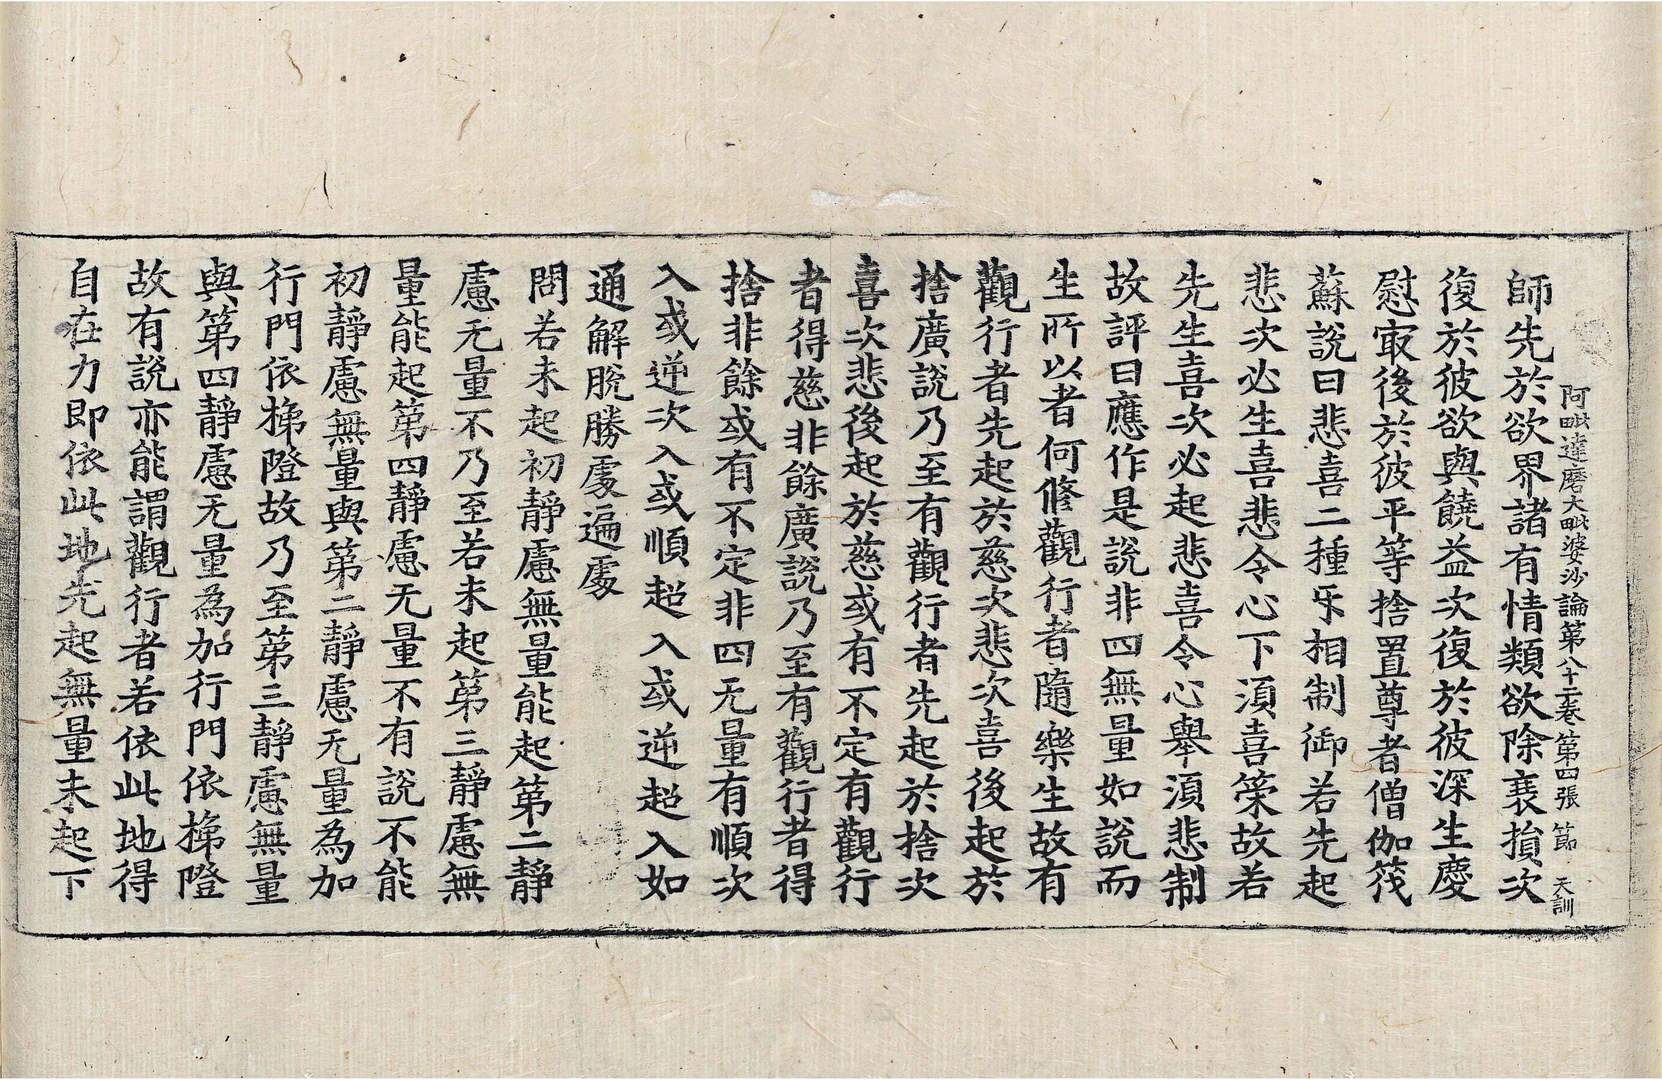 阿毗達磨大毗婆沙論第八十二卷 第四張 節 天訓
師先於欲界諸有情類欲除衰損次
復於彼欲與饒益次復於彼深生慶
慰㝡後於彼平等捨置尊者僧伽筏
蘇說曰悲喜二種㸦相制御若先起
悲次必生喜悲令心下湏喜䇿故若
先生喜次必起悲喜令心舉湏悲制
故評曰應作是說非四無量如說而
生所以者何修觀行者隨樂生故有
觀行者先起於慈次悲次喜後起於
捨廣說乃至有觀行者先起於捨次
喜次悲後起於慈或有不定有觀行
者得慈非餘廣說乃至有觀行者得
捨非餘或有不定非四无量有順次
入或逆次入或順超入或逆超入如
通解脫勝處遍處
問若未起初靜慮無量能起第二靜
慮无量不乃至若未起第三靜慮無
量能起第四靜慮无量不有說不能
初靜慮無量與第二靜慮无量為加
行門依梯隥故乃至第三靜慮無量
與第四靜慮无量為加行門依梯隥
故有說亦能謂觀行者若依此地得
自在力即依此地先起無量未起下